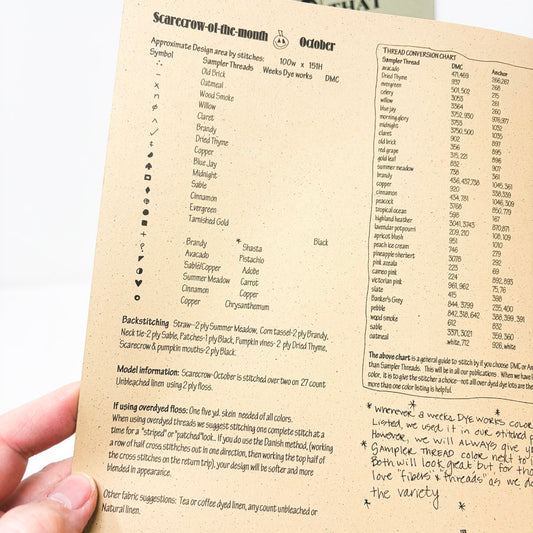 THAT
Scarecrow-of-the-month October
Approximate Design area by stitches: 100w x 151H
Symbol Sampler Threads Weeks Dye works DMC
Old Brick
Oatmeal
Wood Smoke
Willow
Claret
Brandy
Dried Thyme
Copper
Blue Jay
Midnight
Sable
Cinnamon
Evergreen
Tarnished Gold
Brandy * Shasta Black
Avocado Pistachio
Sable/Copper Adobe
Summer Meadow Carrot
Cinnamon Copper
Copper Chrysanthemum
Backstitching Straw-2 ply Summer Meadow, Corn tassel-2 ply Brandy,
Neck tie-2 ply Sable, Patches-1 ply Black, Pumpkin vines- 2 ply Dried Thyme,
Scarecrow & pumpkin mouths-2 ply Black.
Model information: Scarecrow-October is stitched over two on 27 count
Unbleached linen using 2 ply floss.
If using overdyed floss: One five yd. skein needed of all colors.
When using overdyed threads we suggest stitching one complete stitch at a
time for a "striped" or "patched" look. If you do the Danish method, (working
a row of half cross stitches out in one direction, then working the top half of
the cross stitches on the return trip), your design will be softer and more
blended in appearance.
Other fabric suggestions: Tea or coffee dyed linen, any count unbleached or
Natural linen.
THREAD CONVERSION CHART
Sampler Thread DMC Anchor
avacado 471,469 266,267
Dried Thyme 937 268
evergreen 501,502 215
celery 3053 261
willow 3364 260
blue jay 3752,930
morning glory 3753 1032
midnight 3750
claret 902 897
old brick 356
red grape 315,221
gold leaf 832
summer meadow 738
brandy 436,437,738
copper 920
cinnamon 434,938
peacock 3768
tropical ocean 598
highland heather 3041,3743
lavendar potpourri 209,210
apricot blush 951
peach ice cream 746
pineapple sherbert 3078 292
pink azeala 223
cameo pink 224 69
victorian pink 961,962 75,76
slate 415 398
Banker's Grey 844,3799
pebble 842,318,642 388,399,391
wood smoke 612 832
sable 3371,3021 359,360
oatmeal white,712 926, white
The above chart is a general guide to stitch by if you choose DMC or An
than Sampler Threads. This will be in all our publications. When we have l
color. It is to give the stitcher a choice-not all over dyed dye lots are the
more than one color listing is helpful.
* Whenever a Weeks Dye works color
Listed, we used it in our stitched p
However, we will ALWAYS give y
* Sampler Thread color next to
Both will look great but for tho
love "fibers & threads" as we do
the variety